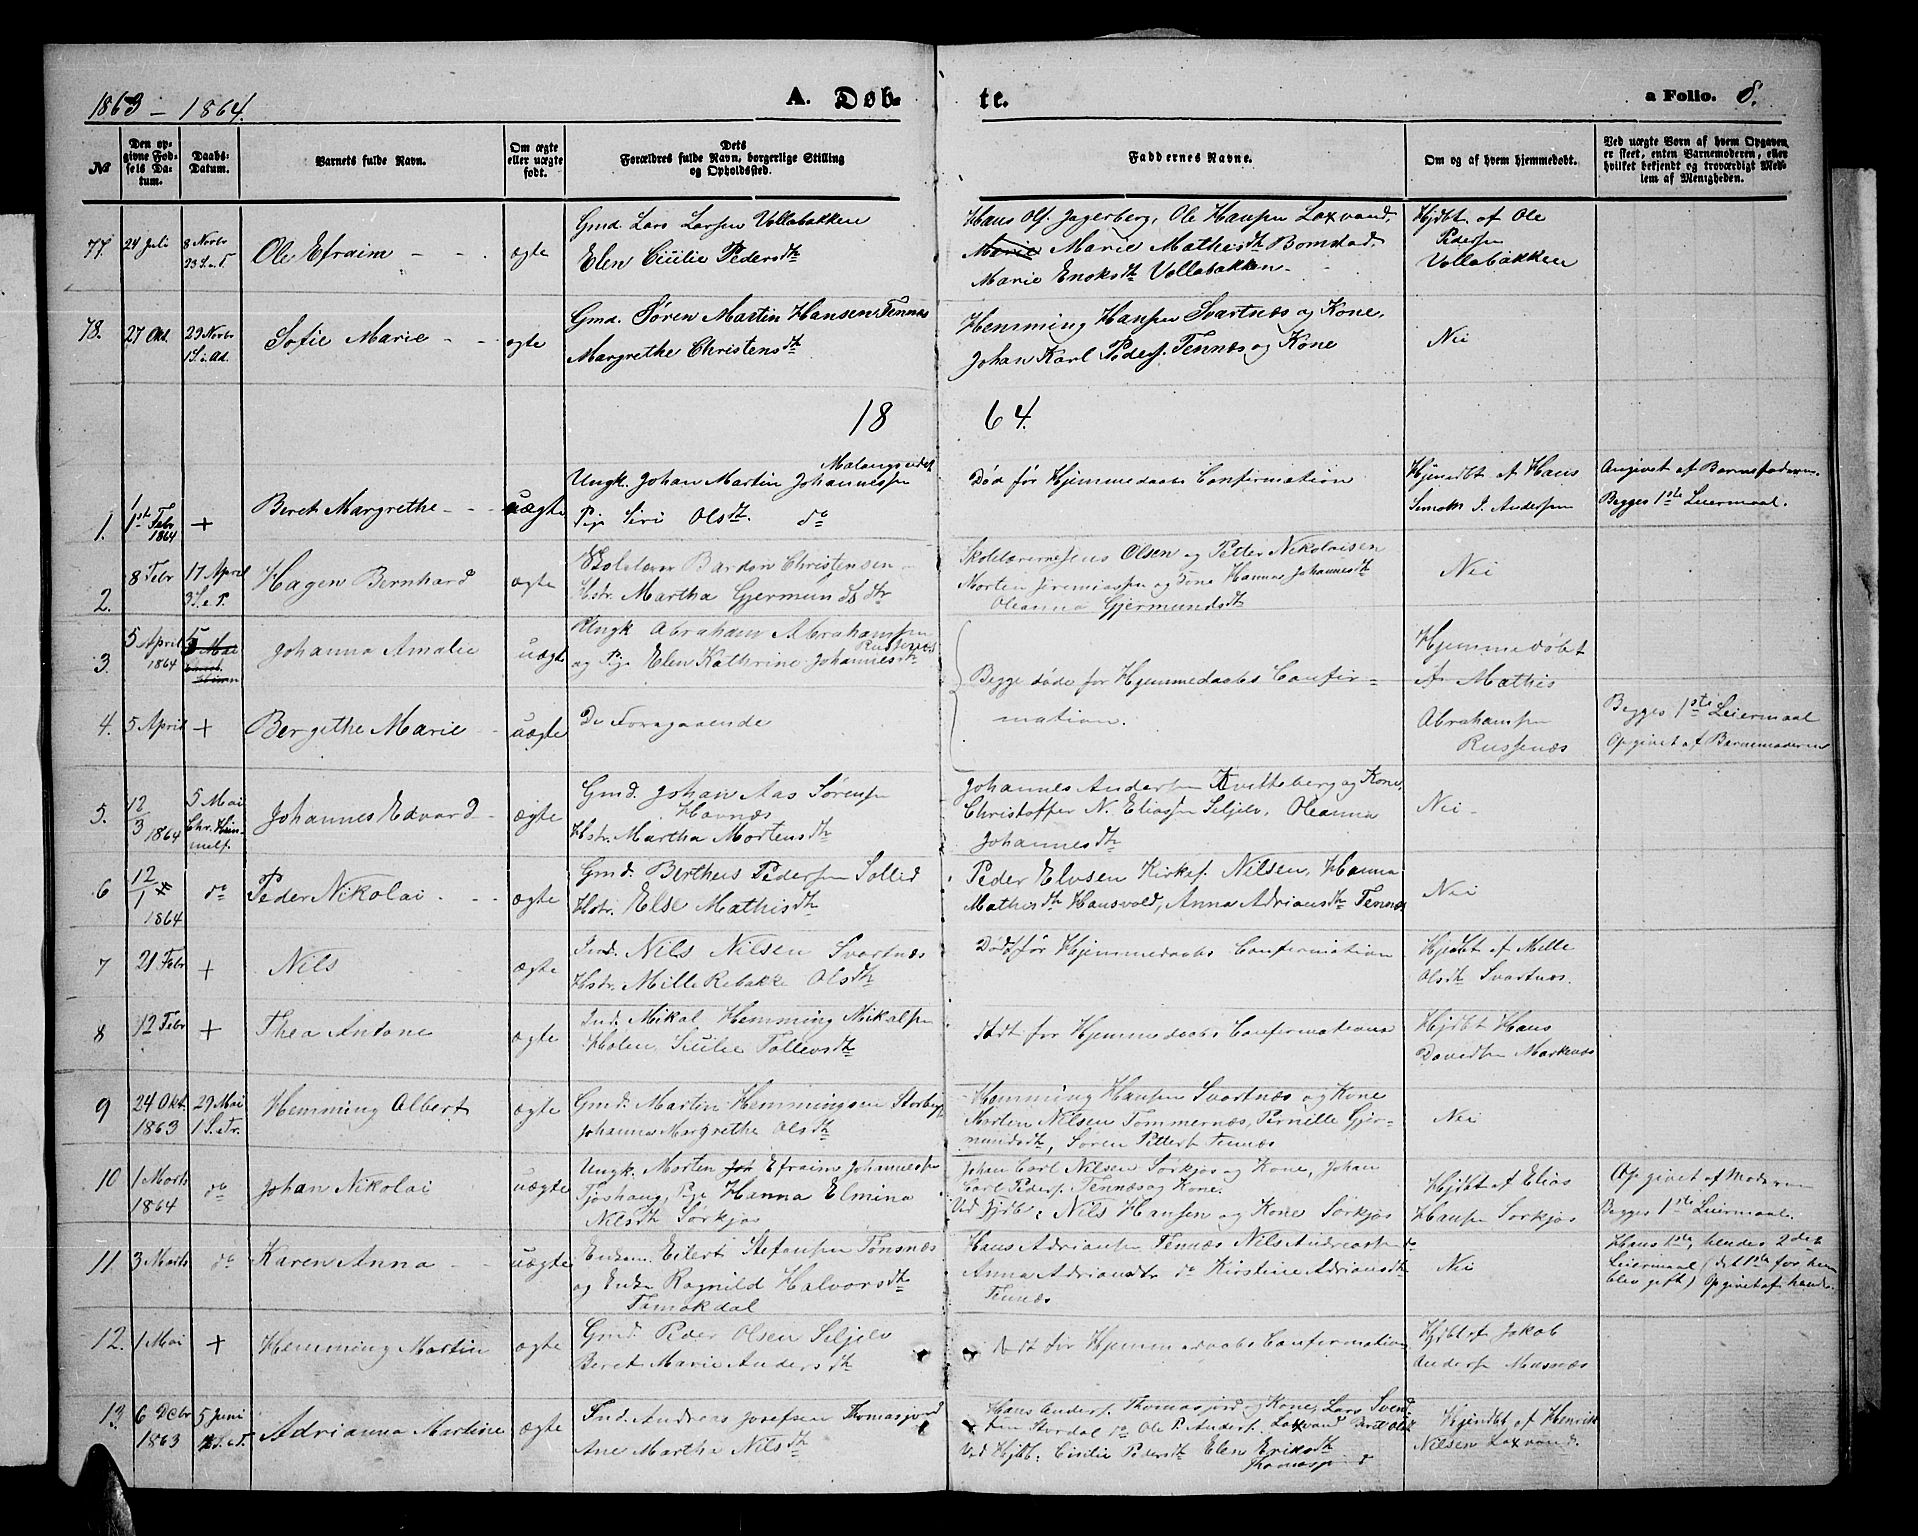 1863 – 1864. A. Døb- te. a Folio. 8.
No
Den op-
givne Fød-
sels Da-
tum.
Daabs-
Datum.
Barnets fulde Navn.
Om ægte
eller uægte
født.
Dets
Forældres fulde Navn, borgerlige Stilling
og Opholdssted.
Faddernes Navne.
Om og af hvem hjemmedøbt.
Ved uægte Børn af hvem Opgaven
er skeet, enten Barnemoderen, eller
hvilket bekjendt og troværdigt Med-
lem af Menigheden.
77. 24 Juli 8 Novbr
23 S. e. T.
Ole Efraim ægte
Gmd. Lars Larsen Vollabakken
Elen Cicilie Pedersdtr
Hans Ols. Jagerberg, Ole Hansen Laxvand,
Marie Marie Mathisdtr Bomstad
Marie Enoksdtr Vollabakken
Hjdbt. af Ole
Pedersen
Vollabakken
78. 27 Okt. 29 Novbr
1 S. i Ad.
Sofie Marie ægte
Gmd. Søren Martin Hansen Tennæs
Margrethe Christensdtr
Hemming Hansen Svartnæs og Kone,
Johan Karl Peders. Tennæs og Kone
Nei
18 64.
1. 1st Febr
1864
+
Beret Margrethe uægte
Malangseidet
Ungk. Johan Martin Johannessen
Pige Siri Olsdtr. do
Død før Hjemmedaabs Confirmation
Hjemdbt af Hans
Andersen
Angivet af Barnefaderen
Begges 1ste Leiermaal.
2. 8 Febr 17 April
3 S. e. P.
Hagen Bernhard ægte
Bardon Christensen
Hstr. Martha Gjermundsdtr
Skolelærer Jens Olsen og Petter Nikolaisen
Morten Jeremiassen og Kone Hanna Johannesdtr
Oleanna Gjermundsdtr
Nei
3. 5 April
1864
5 Mai
Johanna Amalie uægte
Ungk Abraham Abrahamsen
Russenes
og Pige Elen Kathrine Johannesdtr
Begge døde før Hjemmedaabs Confir-
mation.
Hjemmedøbt
Af Mathis
Abrahamsen
Russenæs
4. 5 April + Bergithe Marie uægte
De Foregaaende
Begges 1ste Leiermaal
Opgivet af Barnemoderen
5. 12/3 1864
5 Mai
Chr. Him-
melf.
Johannes Edvard ægte
Gmd. Johan Aas Sørensen
Havnæs
Hstr. Martha Mortensdtr
Johannes Andersen Kvitteberg og Kone,
Christoffer N. Eliassen Seljelv, Oleanna
Johannesdtr
Nei
6 12/1 1864 do
Peder Nikolai ægte
Gmd. Bertheus Pedersen Sollid
Hstr. Else Mathisdtr
Peder Elvsen Kirkes. Nilsen, Hanna
Mathisdtr Hansvold, Anna Adriansdtr Tennæs
Nei
7 21 Febr + Nils ægte
Ind. Nils Nilsen Svartnæs
Hstr. Mille Rebakke Olsdtr
Død før Hjemmedaabs Confirmation
Hjdbt af Mille
Olsdtr Svartnæs.
8 12 Febr + Thea Antone ægte
Ind. Mikal Hemming Mikalsen
Holen, Sicilie Tollevsdtr
død før Hjemmedaabs Confirmations
Hjdbt Hans
Davidsen Markenæs
9 24 Okt
1863
29 Mai
1 S. e. Tr.
Hemming Albert ægte
Gmd. Martin Hemmingsen Storberg
Johanna Margrethe Olsdtr
Hemming Hansen Svartnæs og Kone
Morten Nilsen Tommernæs, Pernille Gjer-
mundsdtr, Søren Petters. Tennæs
Nei
10 1 Marts
1864
do
Johan Nikolai uægte
Ungk. Morten Joh Efraim Johannessen
Tjoshaug, Pige Hanna Elmina
Nilsdtr Sørkjos
Johan Carl Nilsen Sørkjos og Kone, Johan
Carl Peders. Tennæs og Kone.
Ved Hjdb: Nils Hansen og Kone Sørkjos
Hjdbt af Elias
Hansen Sørkjos
Opgivet af Moderen
Begges 1ste Leiermaal.
11. 3 Marts do
Karen Anna uægte
Enkem. Eilert Stefansen Tønsnæs
og Enke Ragnild Halvorsdtr
Tamokdal
Hans Adriansen Tennæs Nils Andreassen do
Anna Adriansdtr do Kirstine Adriansdtr
Tennæs
Nei
Hans 1ste, hendes 2det
Leiermaal (det 1ste før hun
blev gift) Opgivet af hende.
12. 1 Mai + Hemming Martin ægte
Gmd. Peder Olsen Seljelv
Beret Marie Andersdtr
Død før Hjemmedaabs Confirmation
Hjdbt af Jakob
Andersen Masnæs
13. 6 Decbr
1863
5 Juni
2 S. e. T.
Adrianna Martine ægte
Ind. Andreas Josefsen Thomasjord
Ane Martha Nilsdtr
Hans Anders. Thomasjord og Kone, Lars Svend-
sen Stordal do Ole P. Anders. Laxvand Berit Olsdtr
Ved Hjdb: Cicilie Pedersdtr Elen Eriksdtr
Thomasjord
Hjemdbt af Henrik
Nilsen Laxvand.